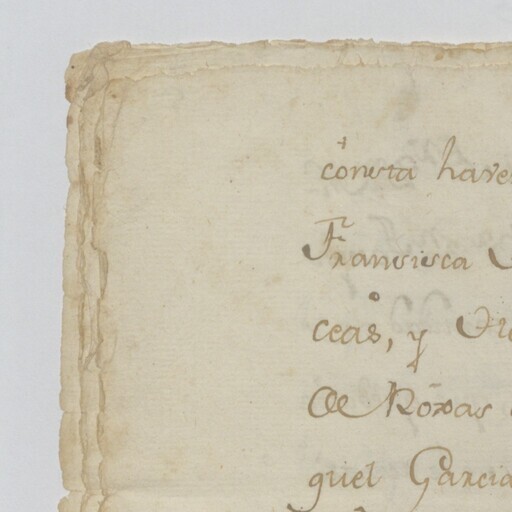 consta have
Francisca
ceas, y
de Roxas
guel Garcia